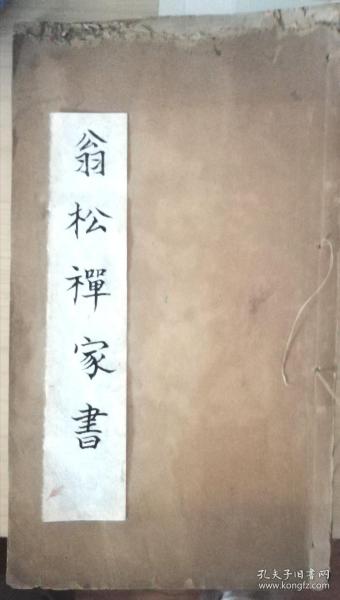 翁松禪家書
孔夫子旧书网
www.kongfz.com